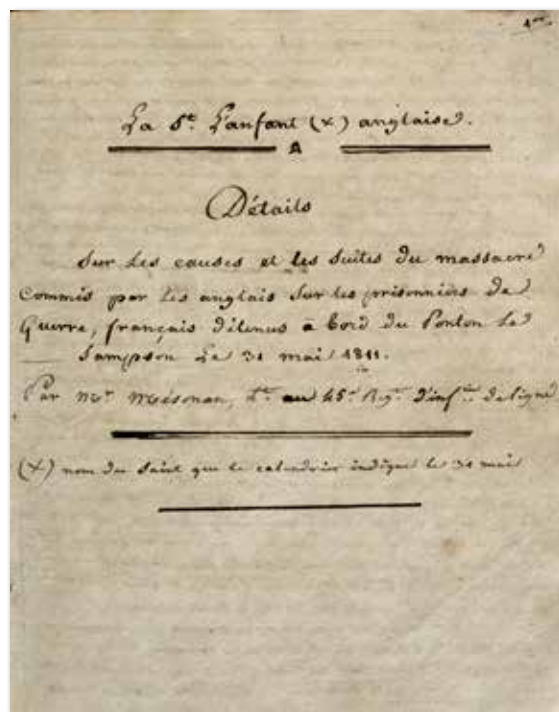 La St. Lanfant (x) anglaise.
A
Détails
Sur les causes et les Suites du massacre
Commis par les anglais Sur les prisonniers de
Guerre, français détenus à bord du Ponton le
Sampson Le 31 mai 1811.
Par Mr. Mésonan, Lt. au 45e. Rgt. d'infie. de ligne
(x) nom du Saint que le calendrier indique le 31 mai